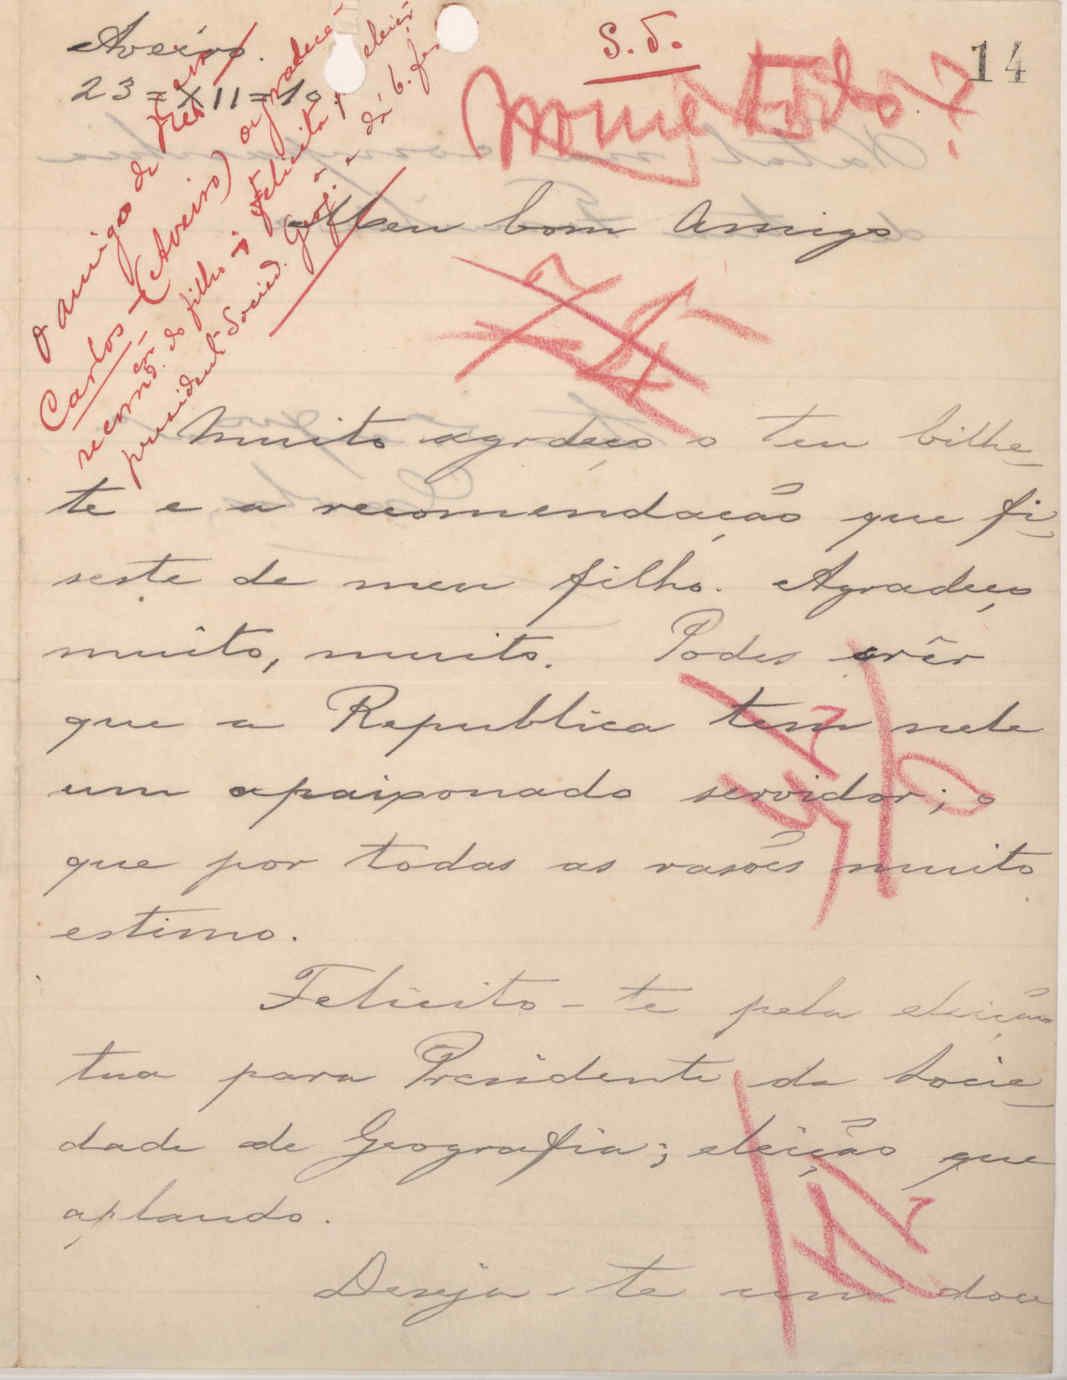 Aveiro.
23=XII=10
S. d.
14
nome todo?
O amigo de
Carlos (Aveiro) agradece a
recomd. do filho e felicita p. eleiç.
president. Socied. Geog.
Meu bom Amigo
Muito agradeço o teu bilhe-
te e a recomendação que fi-
seste de meu filho. Agradeço
muito, muito. Podes crêr
que a Republica tem nele
um apaixonado servidor; o
que por todas as rasões muito
estimo.
Felicito-te pela eleição
tua para Presidente da Socie-
dade de Geografia; eleição que
aplaudo.
Deseja-te um doce